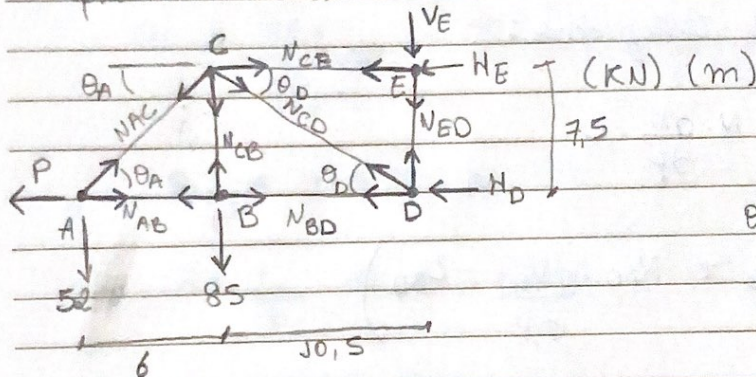 V_E
C N_CE H_E (KN) (m)
θ_A θ_D E
N_AC N_CD N_ED 7,5
N_CB
P θ_A θ_D H_D
A N_AB B N_BD D
52 85
6 10,5